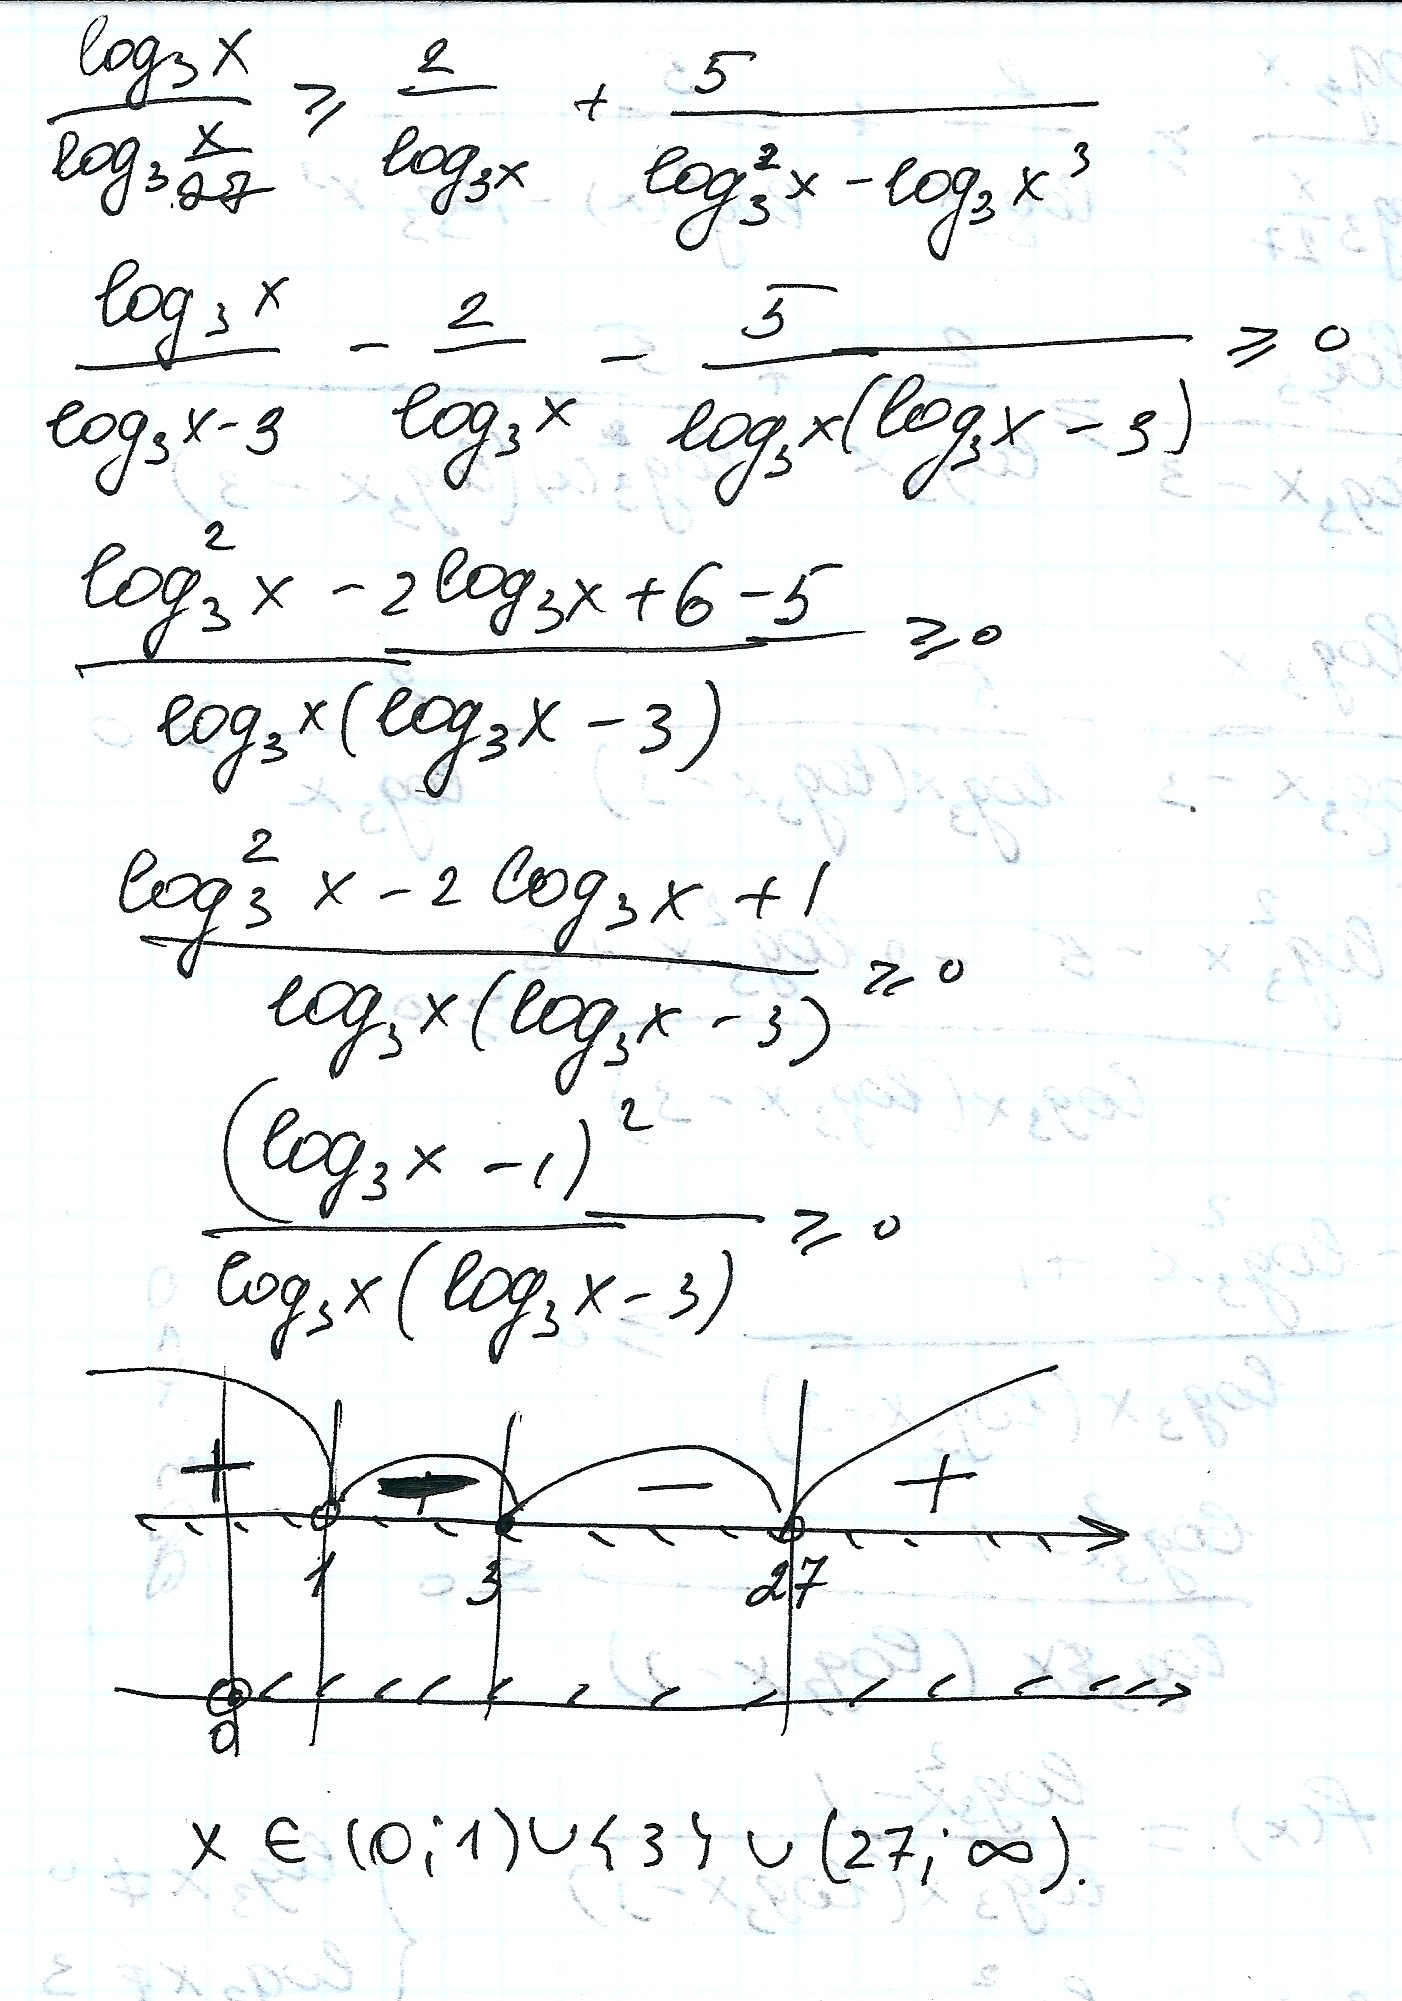 log₃x / log₃(x/27) ≥ 2 / log₃x + 5 / (log₃²x - log₃x³)
log₃x / (log₃x - 3) - 2 / log₃x - 5 / (log₃x(log₃x - 3)) ≥ 0
(log₃²x - 2log₃x + 6 - 5) / (log₃x(log₃x - 3)) ≥ 0
(log₃²x - 2log₃x + 1) / (log₃x(log₃x - 3)) ≥ 0
(log₃x - 1)² / (log₃x(log₃x - 3)) ≥ 0
+ − − +
1 3 27
0
x ∈ (0; 1) ∪ {3} ∪ (27; ∞).